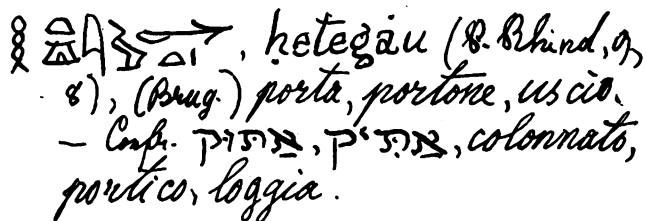 , ḥetegȧu (P. Rhind, 9,
8), (Brug.) porta, portone, uscio.
— Confr. אַתּוּק, אַתִּיק, colonnato,
portico, loggia.